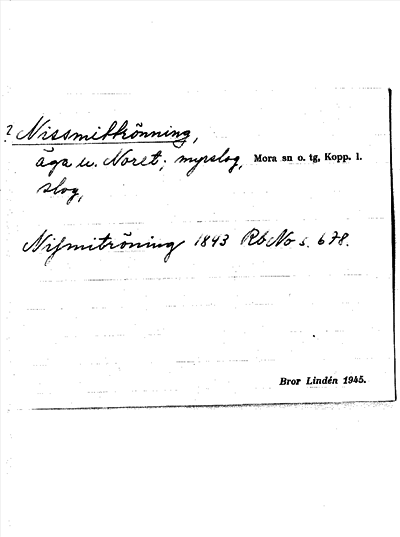 ? Nissmitkrönning,
äga u. Noret; myrslog, Mora sn o. tg, Kopp. l.
slog,
Nißmitröning 1843 Rb No s. 678.
Bror Lindén 1945.